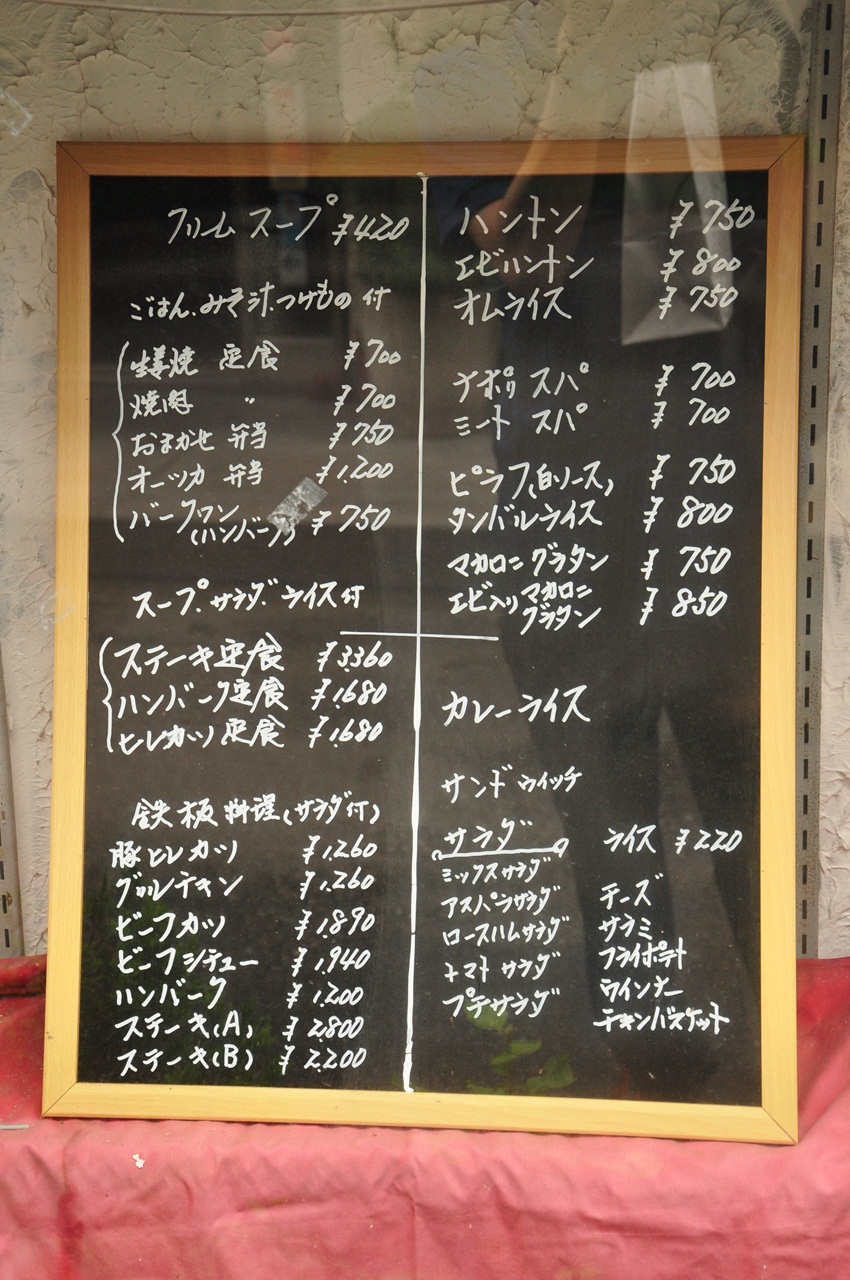 クリームスープ ¥420
ごはん、みそ汁、つけもの付
生姜焼 定食 ¥700
焼肉 〃 ¥700
おまかせ 弁当 ¥750
オーツカ 弁当 ¥1,200
バーグワン ¥750
(ハンバーグ)
スープ、サラダ、ライス付
ステーキ定食 ¥3,360
ハンバーグ定食 ¥1,680
ヒレカツ定食 ¥1,680
鉄板料理(サラダ付)
豚ヒレカツ ¥1,260
グリルチキン ¥1,260
ビーフカツ ¥1,890
ビーフシチュー ¥1,940
ハンバーグ ¥1,200
ステーキ(A) ¥2,800
ステーキ(B) ¥2,200
ハントン ¥750
エビハントン ¥800
オムライス ¥750
ナポリ スパ ¥700
ミート スパ ¥700
ピラフ(白ソース) ¥750
タンバルライス ¥800
マカロニグラタン ¥750
エビ入りマカロニ ¥850
グラタン
カレーライス
サンドウイッチ
サラダ
ミックスサラダ
アスパラサラダ
ロースハムサラダ
トマトサラダ
プチサラダ
ライス ¥220
チーズ
サラミ
フライポテト
ウインナー
チキンバスケット